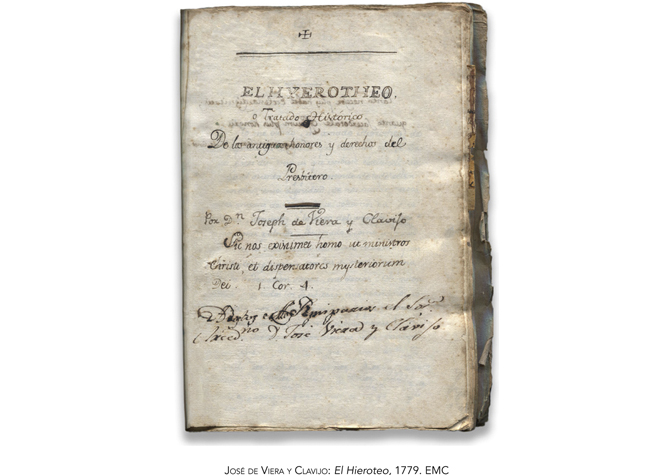 EL HYEROTHEO.
o Tratado Historico
De los antiguos honores y derechos del
Presbitero.
Por Dn. Joseph de Viera y Clavijo
Sic nos existimet homo ut ministros
Christi, et dispensatores mysteriorum
Dei. 1. Cor. 4.
el
no Dn. José Viera y Clavijo
JOSÉ DE VIERA Y CLAVIJO: El Hieroteo, 1779. EMC